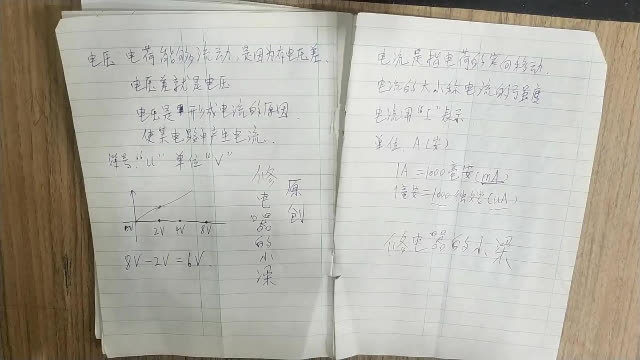 电压 电荷能够流动,是因为有电压差.
电压差就是电压
电压是形成电流的原因.
使某电路中产生电流.
符号:"U" 单位"V"
0V 2V 4V 8V
8V-2V=6V.
原创
修电器的小梁
电流是指电荷的定向移动.
电流的大小称电流的强度
电流用"I"表示
单位 A(安)
1A=1000毫安(mA)
1毫安=1000微安(uA)
修电器的小梁